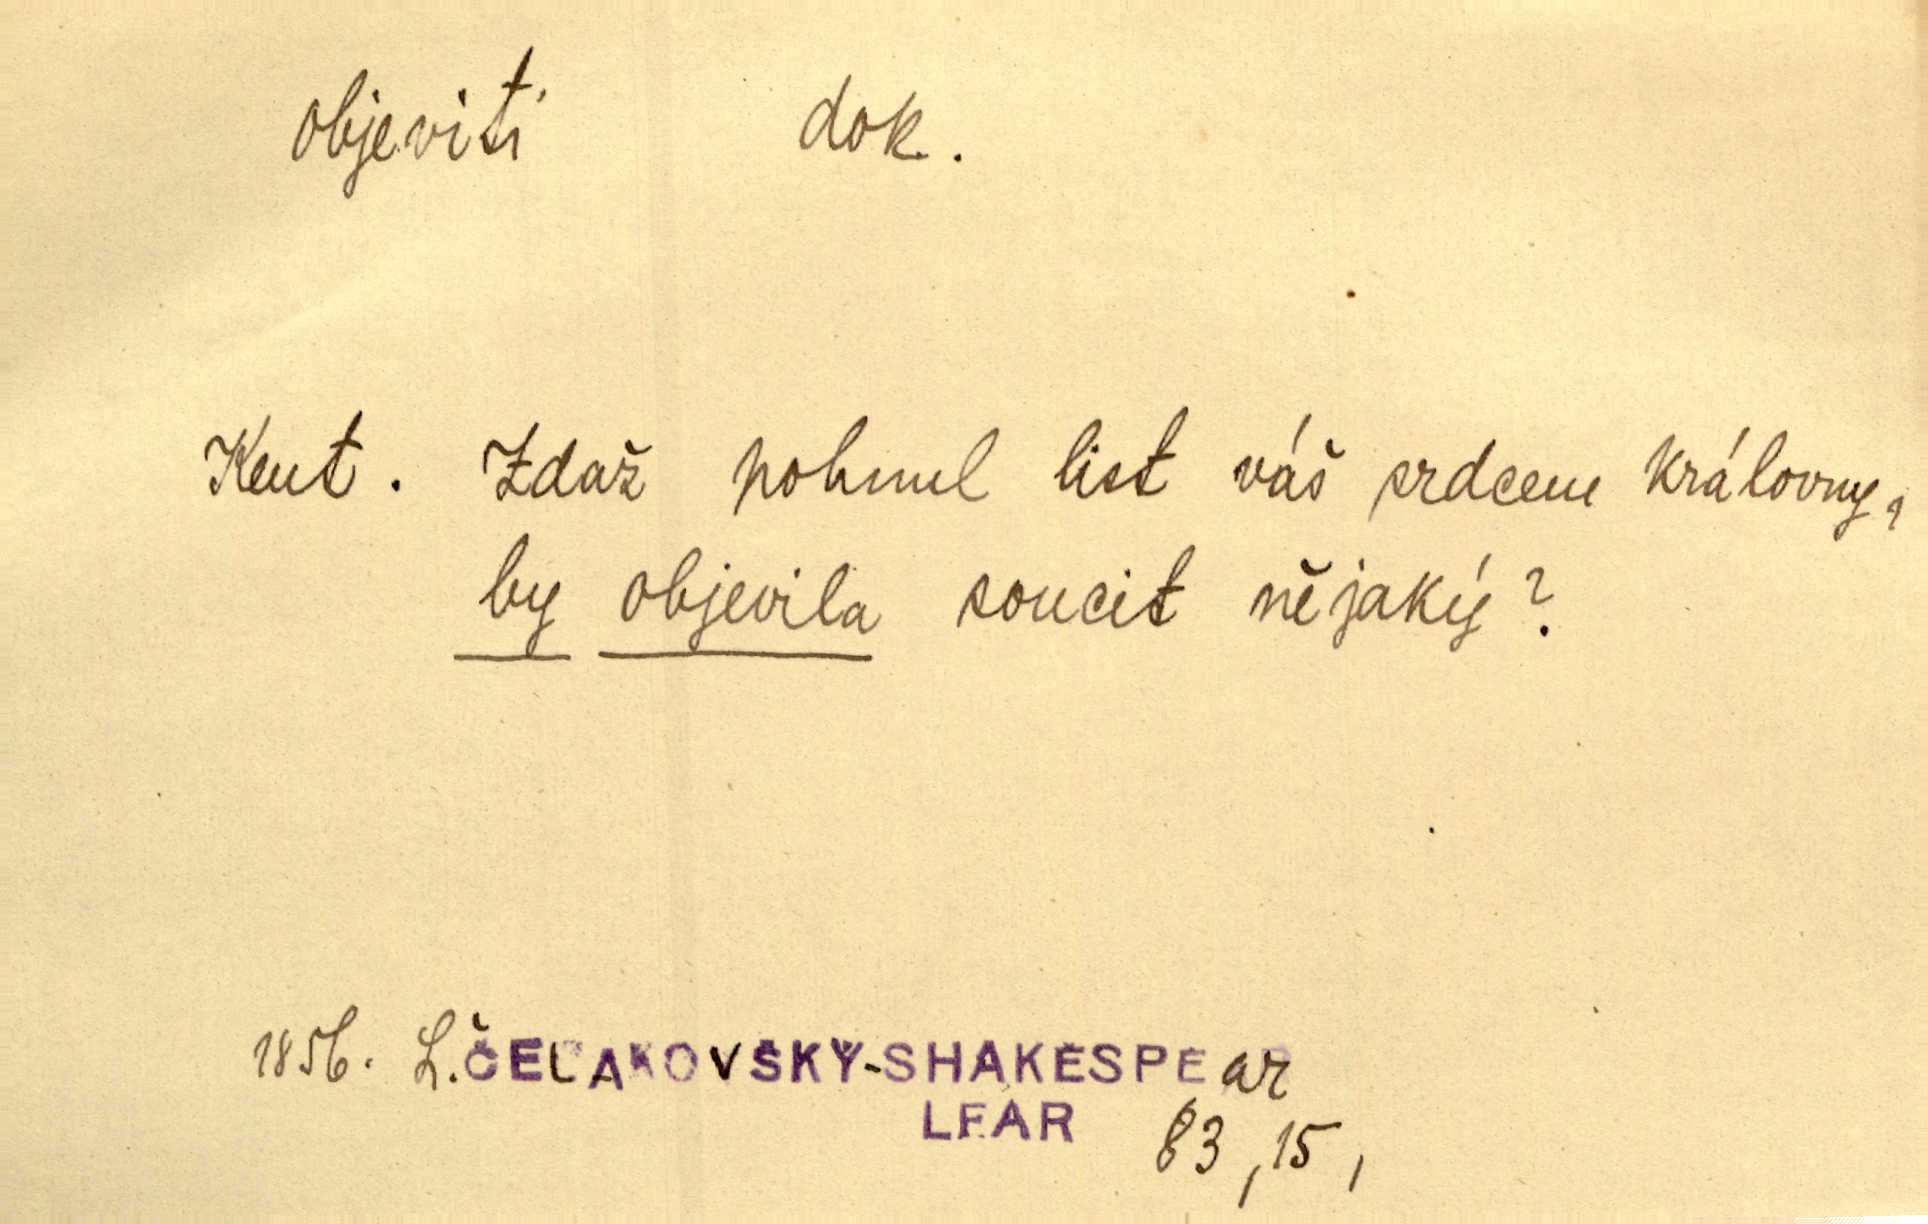 objeviti dok.
Kent. Zdaž pohnul list váš srdcem královny,
by objevila soucit nějaký?
1856. L. ČELAKOVSKÝ-SHAKESPEar
LEAR 83, 15,